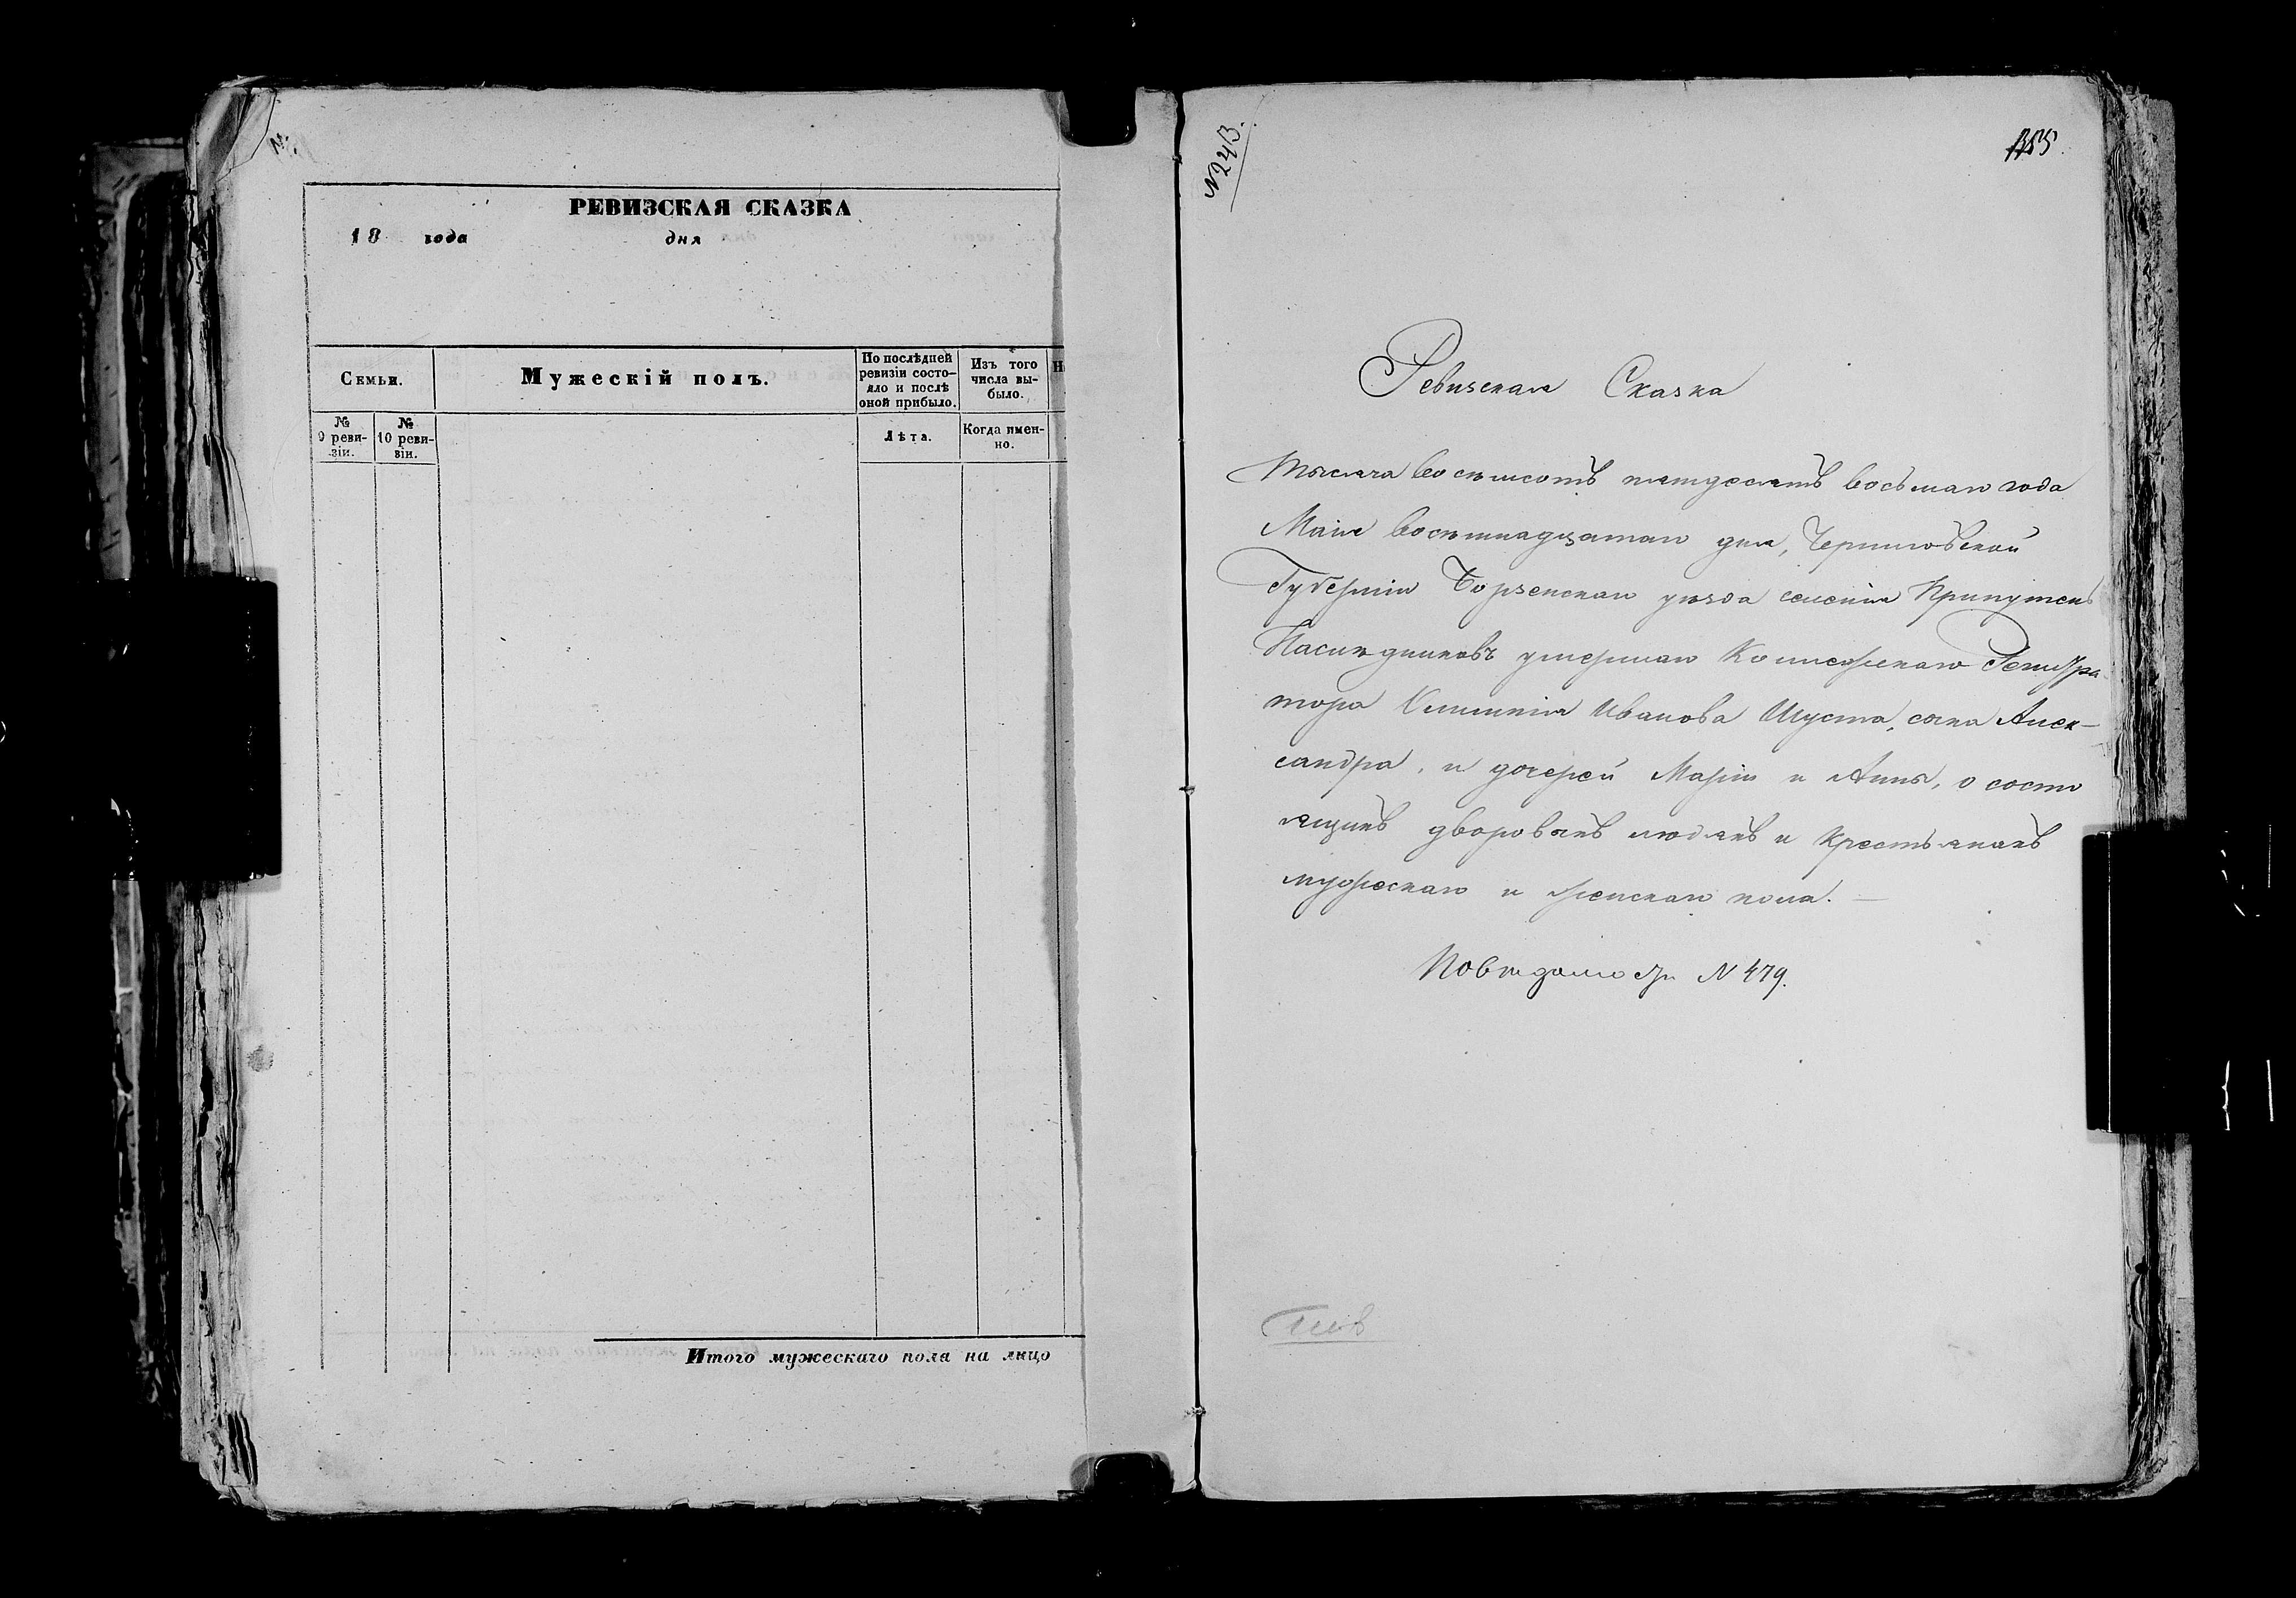 РЕВИЗСКАЯ СКАЗКА
18 года дня
Семьи.
Мужескій полъ.
По послѣдней ревизіи состо-
яло и послѣ
оной прибыло.
Изъ того
числа вы-
было.
№
9 реви-
зіи.
№
10 реви-
зіи.
Лѣта.
Когда имен-
но.
Итого мужескаго пола на лицо
N 243.
Ревизская Сказка
Тысяча восемсотъ пятдесятъ восьмаго года
Маія восемнадцатаго дня, Черниговской
Губерніи Борзенскаго уѣзда селенія Припутенъ
Наслѣдниковъ умершаго Коллежскаго Регистра-
тора Иванова Шуста, сына Алек-
сандра, и дочерей Маріи и Анны, о состо
ящихъ дворовыхъ людяхъ и крестьянахъ
мужескаго и женскаго пола. —
По вѣдомости N 479.